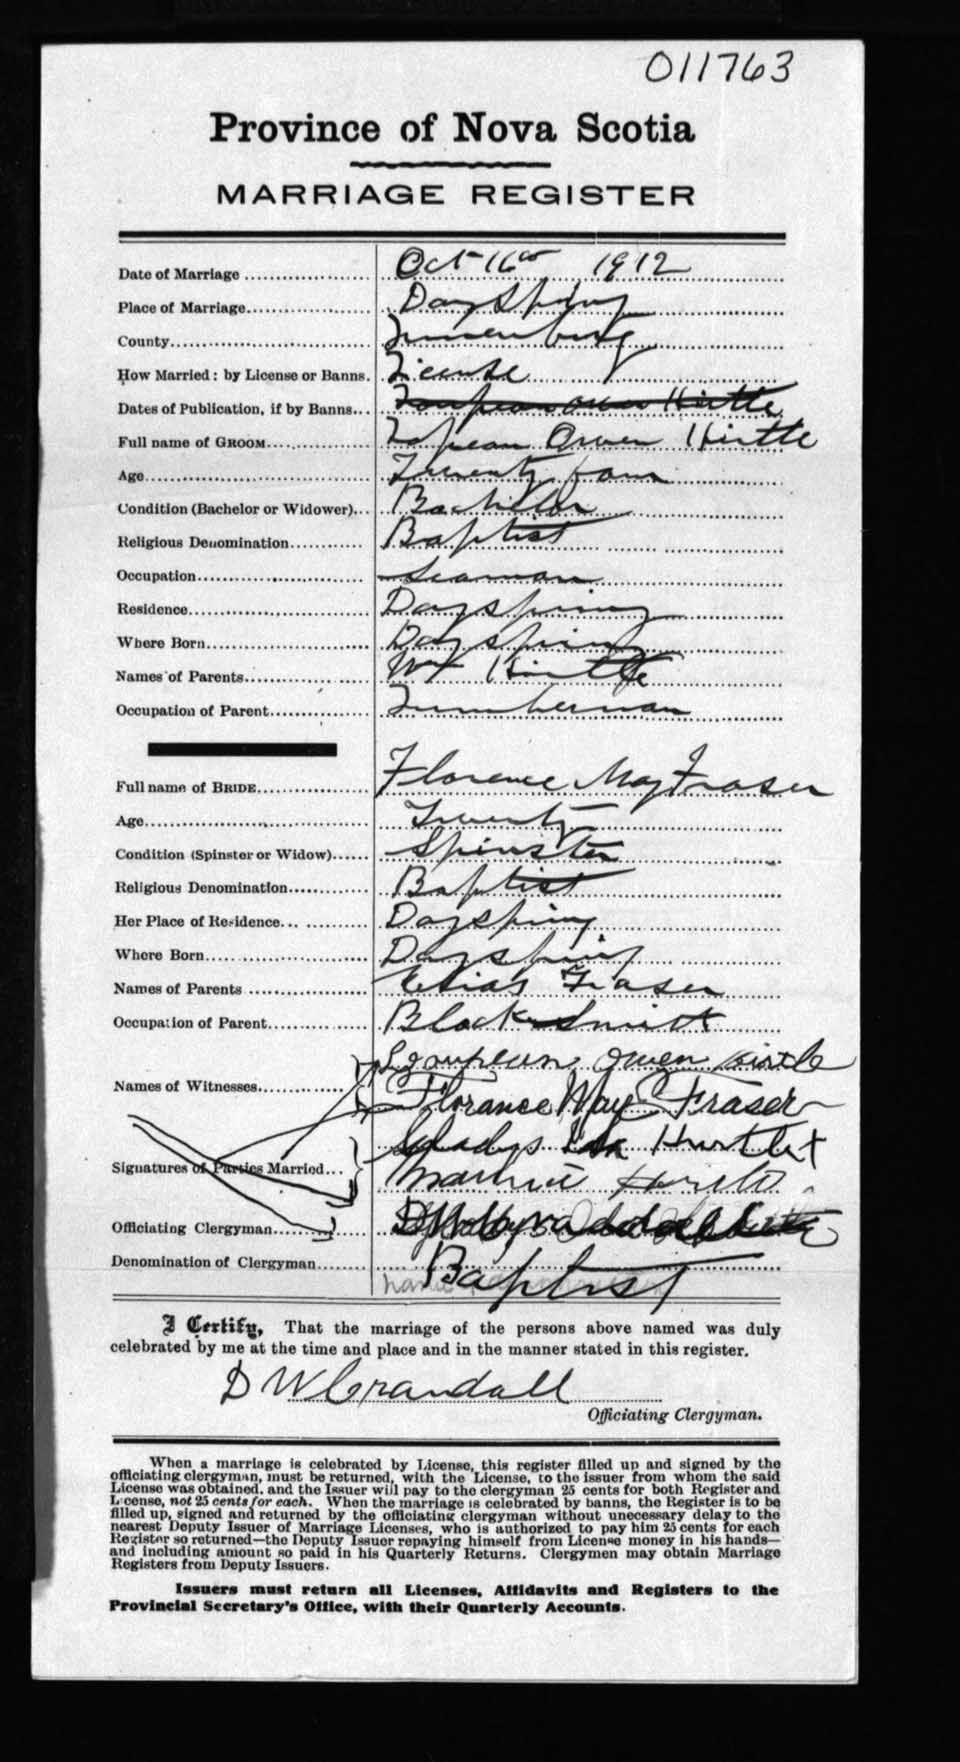 011763
Province of Nova Scotia
MARRIAGE REGISTER
Date of Marriage Oct 16 1912
Place of Marriage Day Spring
County Lunenburg
How Married: by License or Banns. License
Dates of Publication, if by Banns Owen Hirtle
Full name of GROOM Owen Hirtle
Age Twenty four
Condition (Bachelor or Widower) Bachelor
Religious Denomination Baptist
Occupation Seaman
Residence Dayspring
Where Born Dayspring
Names of Parents Wm Hirtle
Occupation of Parent Lumberman
Full name of BRIDE Florence May Fraser
Age Twenty
Condition (Spinster or Widow) Spinster
Religious Denomination Baptist
Her Place of Residence Dayspring
Where Born Dayspring
Names of Parents Elias Fraser
Occupation of Parent Blacksmith
Owen Hirtle
Names of Witnesses Florance May Fraser
Gladys Hurtle
Signatures of Parties Married
Officiating Clergyman
Denomination of Clergyman Baptist
I Certify, That the marriage of the persons above named was duly
celebrated by me at the time and place and in the manner stated in this register.
D W Crandall
Officiating Clergyman.
When a marriage is celebrated by License, this register filled up and signed by the
officiating clergyman, must be returned, with the License, to the issuer from whom the said
License was obtained. and the Issuer will pay to the clergyman 25 cents for both Register and
License, not 25 cents for each. When the marriage is celebrated by banns, the Register is to be
filled up, signed and returned by the officiating clergyman without unnecessary delay to the
nearest Deputy Issuer of Marriage Licenses, who is authorized to pay him 25 cents for each
Register so returned—the Deputy Issuer repaying himself from License money in his hands—
and including amount so paid in his Quarterly Returns. Clergymen may obtain Marriage
Registers from Deputy Issuers.
Issuers must return all Licenses, Affidavits and Registers to the
Provincial Secretary's Office, with their Quarterly Accounts.